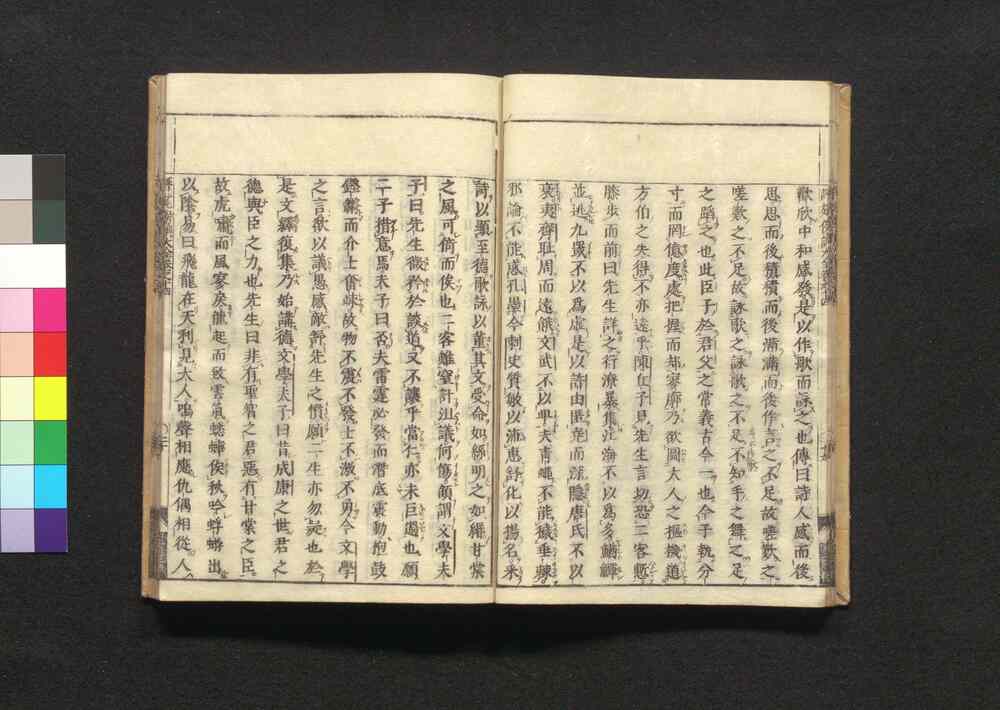 歡欣中和感發是以作歌而詠之也傳曰詩人感而後
思思而後積積而後滿滿而後作言之不足故嗟歎之
嗟歎之不足故詠歌之詠歌之不足不知手之舞之足
之蹈之也此臣子於君父之常義古今一也今子執分
寸而罔億度處把握而却寥廓乃欲圖大人之樞機道
方伯之失得不亦遠乎陳丘子見先生言切恐二客慙
膝步而前曰先生詳之行潦暴集江海不以爲多鰌鱓
並逃九罭不以爲虛是以許由匿堯而深隱唐氏不以
衰夷齊恥周而遠餓文武不以卑夫青蠅不能穢垂棘
邪論不能惑孔墨今刺史質敏以流惠舒化以揚名采
詩以顯至德歌詠以董其文受命如絲明之如緡甘棠
之風可倚而俟也二客雖窒計沮議何傷顧謂文學夫
子曰先生微矜於談道又不讓乎當仁亦未巨過也願
二子措意焉夫子曰否夫雷霆必發而潛底震動枹鼓
鏗鏘而介士奮竦故物不震不發士不激不勇今文學
之言欲以議愚感敵舒先生之憤願二生亦勿疑也於
是文繹復集乃始講德文學夫子曰昔成康之世君之
德與臣之力也先生曰非有聖智之君惡有甘棠之臣
故虎嘯而風寥戾龍起而致雲氣蟋蟀俟秋吟蜉蝣出
以陰易曰飛龍在天利見大人鳴聲相應仇偶相從人